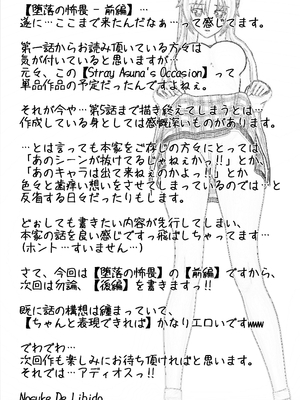 【堕落の怖畏 - 前編】…
遂に…ここまで来たんだなぁ…って感じてます。
第一話からお読み頂いている方々は
気が付いていると思いますが…
元々、この【Stray Asuna's Occasion】って
単品作品の予定だったんですよねぇ。
それが今や…第5話まで描き終えてしまうとは…
作成している身としては感慨深いものがあります。
…とは言っても本家をご存じの方々にとっては
「あのシーンが抜けてるじゃねぇかっ!!」とか、
「あのキャラは出て来ねぇのかよっ!!」とか
色々と歯痒い想いをさせてしまっているのでは…と
反省する日々だったりもします。
どぉしても書きたい内容が先行してしまい、
本家の話を良い感じですっ飛ばしちゃってます…
(ホント…すいません)
さて、今回は【堕落の怖畏】の【前編】ですから、
次回は勿論、【後編】を書きますっ!!
既に話の構想は纏まっていて、
【ちゃんと表現できれば】かなりエロいですwww
でわでわ…
次回作も楽しみにお待ち頂ければと思います。
それでは…アディオスっ!!
Nosuke De Libido